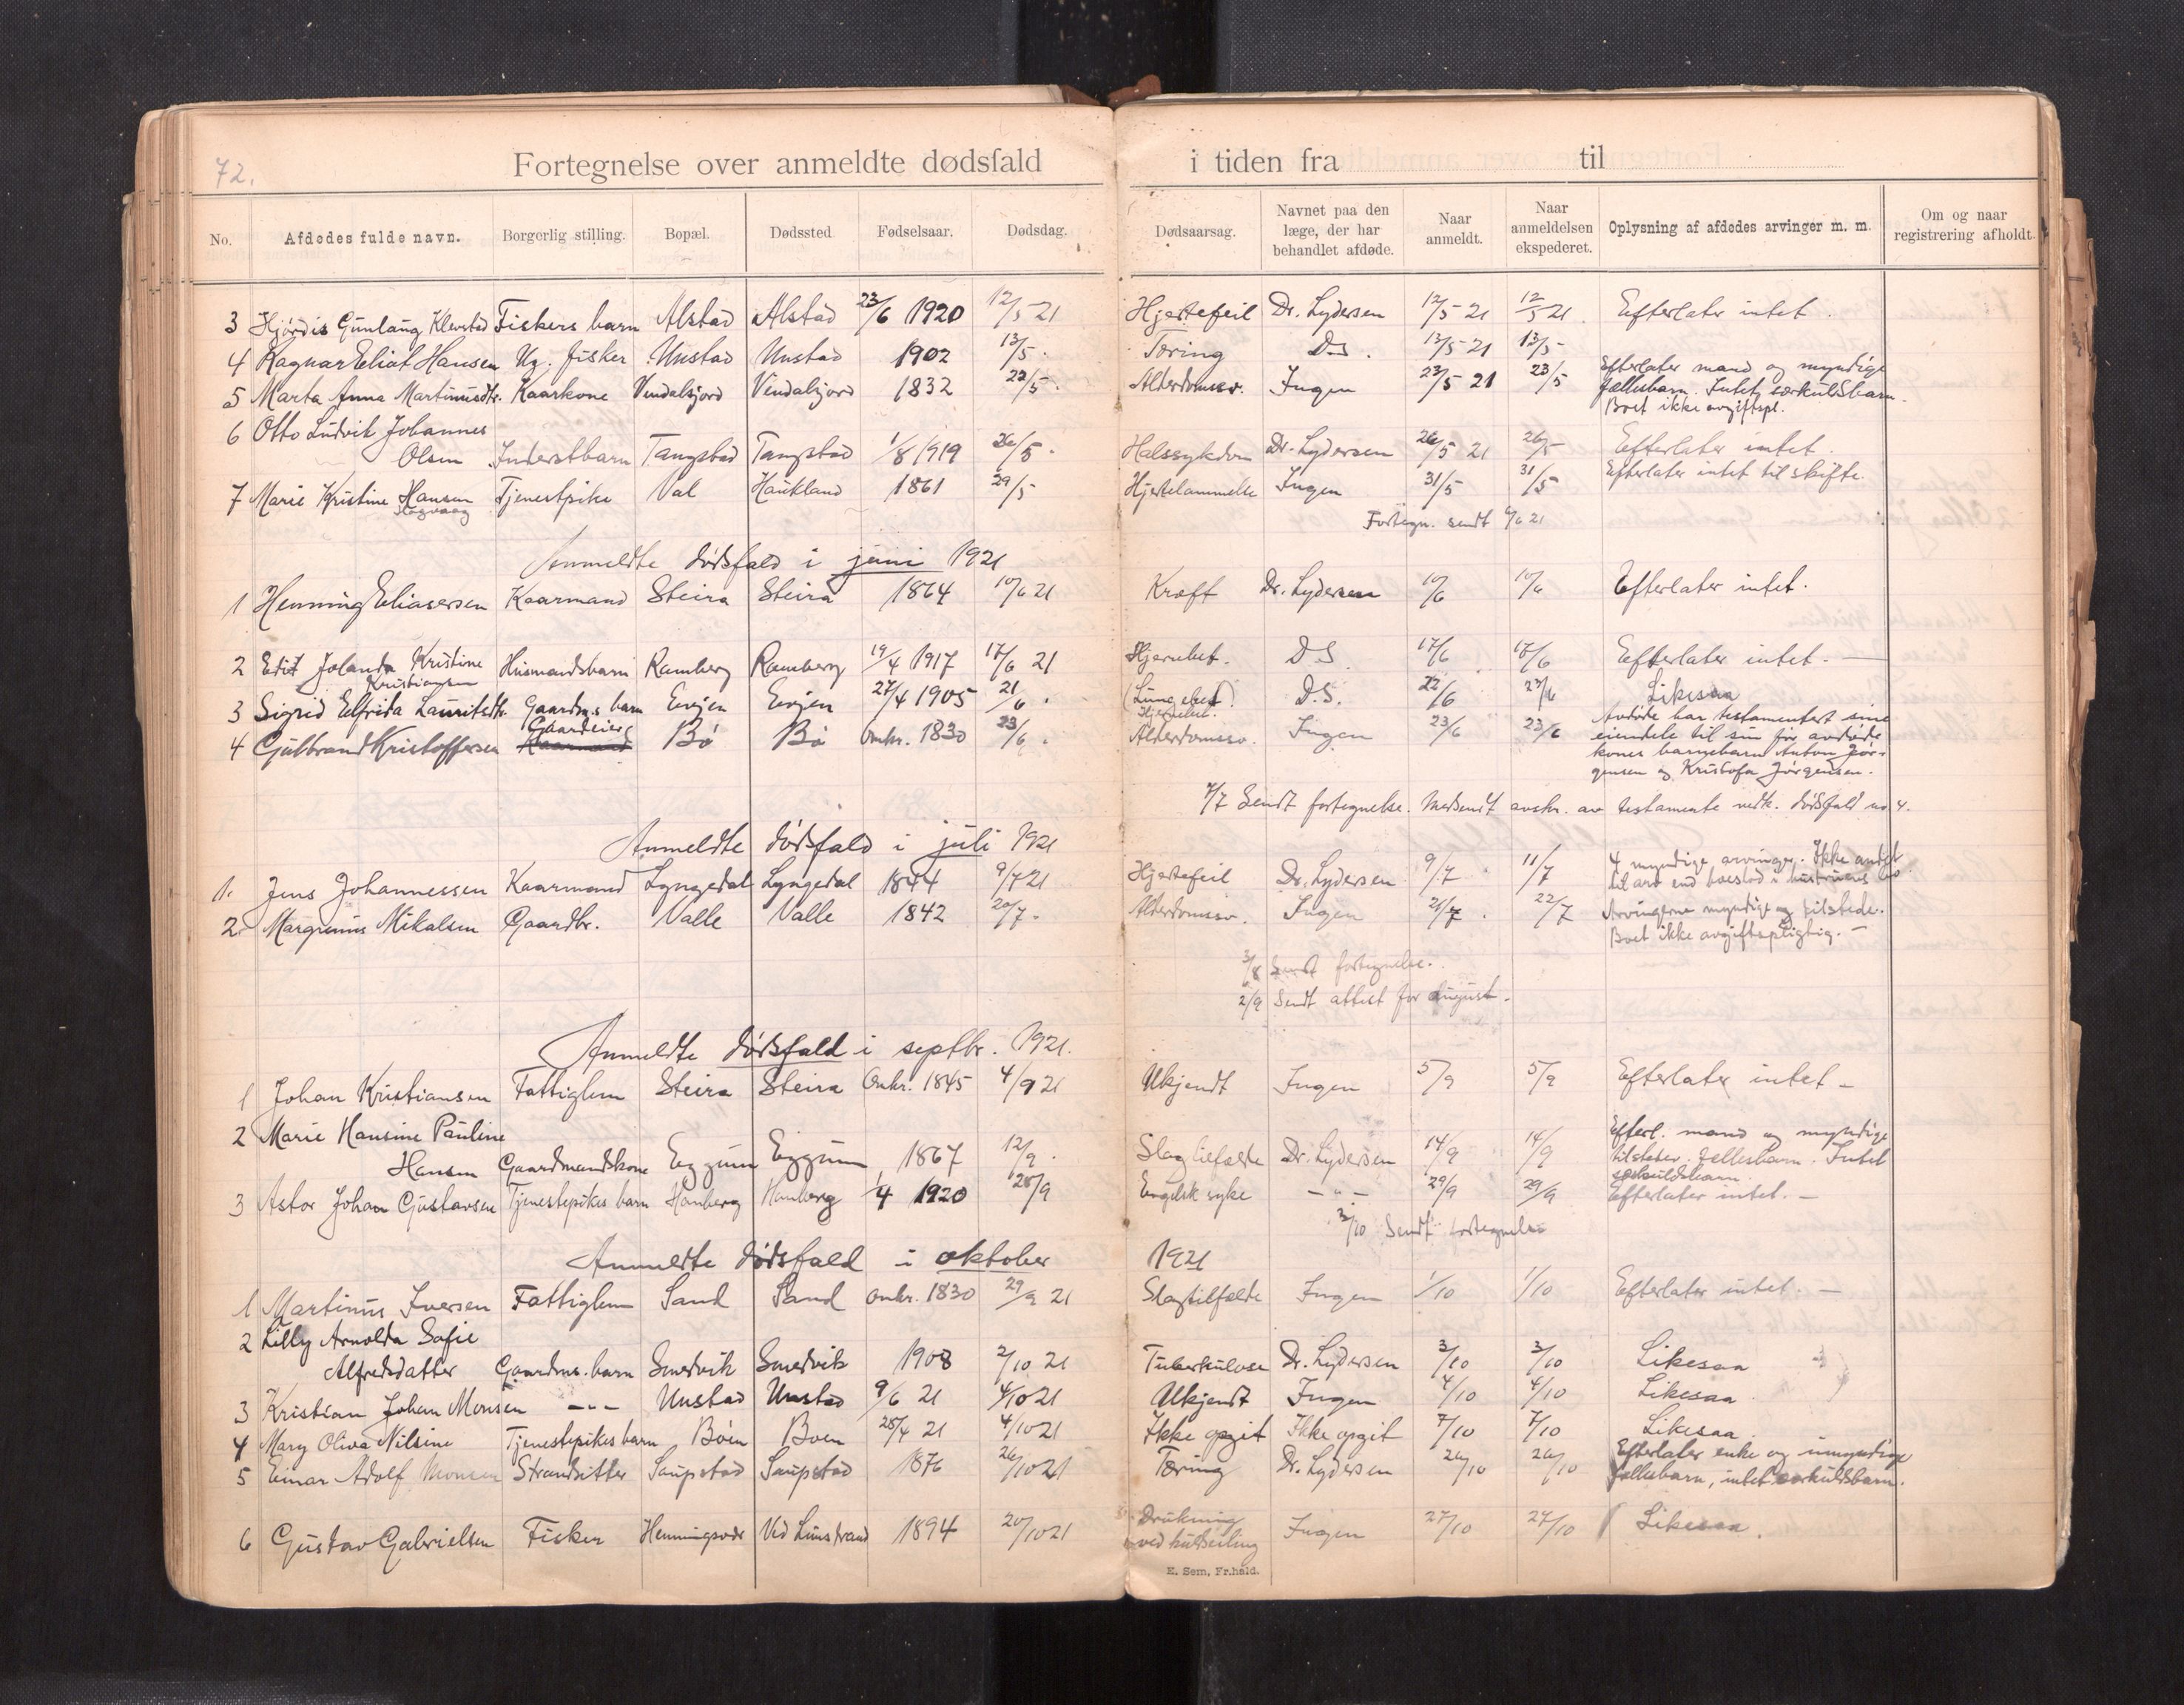 72.
Fortegnelse over anmeldte dødsfald i tiden fra til
No. Afdødes fulde navn. Borgerlig stilling. Bopæl. Dødssted. Fødselsaar. Dødsdag. Dødsaarsag. Navnet paa den læge, der har behandlet afdøde. Naar anmeldt. Naar anmeldelsen ekspederet. Oplysning af afdødes arvinger m. m. Om og naar registrering afholdt.
3 Hjørdis Gunlaug Klevstad Fiskers barn Alstad Alstad 23/6 1920 12/5 21 Hjertefeil Dr. Lydersen 12/5 21 12/5 21. Efterlater intet.
4 Ragnar Eliot Hansen Ug. fisker Unstad Unstad 1902 13/5. Tæring D.S. 13/5 21 13/5
5 Marta Anna Martinusdtr. Kaarkone Vendalsjord Vendalsjord 1832 22/5. Alderdomssv. Ingen 23/5 21 23/5 Efterlater mand og myndige
fællesbarn. Intet særkuldsbarn.
Boet ikke avgiftspl.
6 Otto Ludvik Johannes
Olsen Inderstbarn Tangstad Tangstad 1/8 1919 26/5. Halssykdom Dr. Lydersen 26/5 21 26/5 Efterlater intet.
7 Marie Kristine Hansen Tjenestpike Val Haukland 1861 29/5 Hjertelammelse Ingen 31/5 31/5 Efterlater intet til skifte.
Skogvaag
Fortegn. sendt 6/6 21
Anmeldte dødsfald i juni 1921
1 Henning Eliasersen Kaarmand Steira Steira 1864 10/6 21 Kræft Dr. Lydersen 10/6 10/6 Efterlater intet.
2 Edit Jolanda Kristine Husmandsbarn Ramberg Ramberg 19/4 1917 17/6 21 Hjernebet. D.S. 17/6 17/6 Efterlater intet. —
Kristiansen
3 Sigrid Elfrida Lauritsdtr. Gaardm.s barn Evjen Evjen 27/4 1905 21/6. (Lungebet.) D.S. 22/6 23/6 Likesaa
Hjernebet.
4 Gulbrand Kristoffersen Gaardeier Bø Bø Omkr. 1830 23/6. Alderdomssv. Ingen 23/6 23/6 Avdøde har testamentert sine
Kaarmand
eiendele til sin før avdøde
kones barnebarn Anton Jør-
gensen og Kristofa Jørgensen.
4/7 Sendt fortegnelse. Medsendt avskr. av testamente vedk. dødsfald no 4.
Anmeldte dødsfald i juli 1921
1. Jens Johannessen Kaarmand Lyngedal Lyngedal 1844 9/7 21 Hjertefeil Dr. Lydersen 9/7 11/7 4 myndige arvinger. Ikke andet
til arv end boeslod i hustruens bo.
2. Margrenius Mikalsen Gaardbr. Valle Valle 1842 20/7. Alderdomssv. Ingen 21/7. 22/7 Arvingerne myndige og tilstede.
Boet ikke avgiftspligtig. —
3/8 Sendt fortegnelse.
2/9 Sendt attest for august.
Anmeldte dødsfald i septbr. 1921.
1 Johan Kristiansen Fattiglem Steira Steira Omkr. 1845 4/9 21 Ukjendt Ingen 5/9 5/9 Efterlater intet —
2 Marie Hansine Pauline
Hansen Gaardmandskone Eggum Eggum 1867 12/9. Slagtilfælde Dr. Lydersen 14/9 14/9 Efterl. mand og myndige
tilstedev. fællesbarn. Intet
særkuldsbarn.
3 Astor Johan Gustavsen Tjenestepikes barn Homberg Homberg 1/4 1920 28/9 Engelsk syke — " — 29/9 29/9 Efterlater intet. —
3/10 Sendt fortegnelse
Anmeldte dødsfald i oktober 1921
1 Martinus Iversen Fattiglem Sand Sand Omkr. 1830 29/9 21 Slagtilfælde Ingen 1/10 1/10 Efterlater intet. —
2 Lilly Arnolda Sofie
Alfredsdatter Gaardm. barn Smedvik Smedvik 1908 2/10 21 Tuberkulose Dr. Lydersen 3/10 3/10 Likesaa
3 Kristian Johan Monsen — " — Unstad Unstad 9/6 21 4/10 21 Ukjendt Ingen 4/10 4/10 Likesaa.
4 Mary Oliva Nilsine Tjenestepikes barn Bøen Bøen 28/4 21 4/10 21 Ikke opgit Ikke opgit 7/10 7/10 Likesaa.
5 Einar Adolf Monsen Strandsitter Saupstad Saupstad 1876 26/10 21 Tæring Dr. Lydersen 26/10 26/10 Efterlater enke og umyndige
fællesbarn, intet særkuldsbarn.
6 Gustav Gabrielsen Fisker Henningsvær Ved Limstrand 1894 20/10 21 Drukning Ingen 27/10 27/10 Likesaa.
ved kulseiling
E. Sem, Fr.hald.